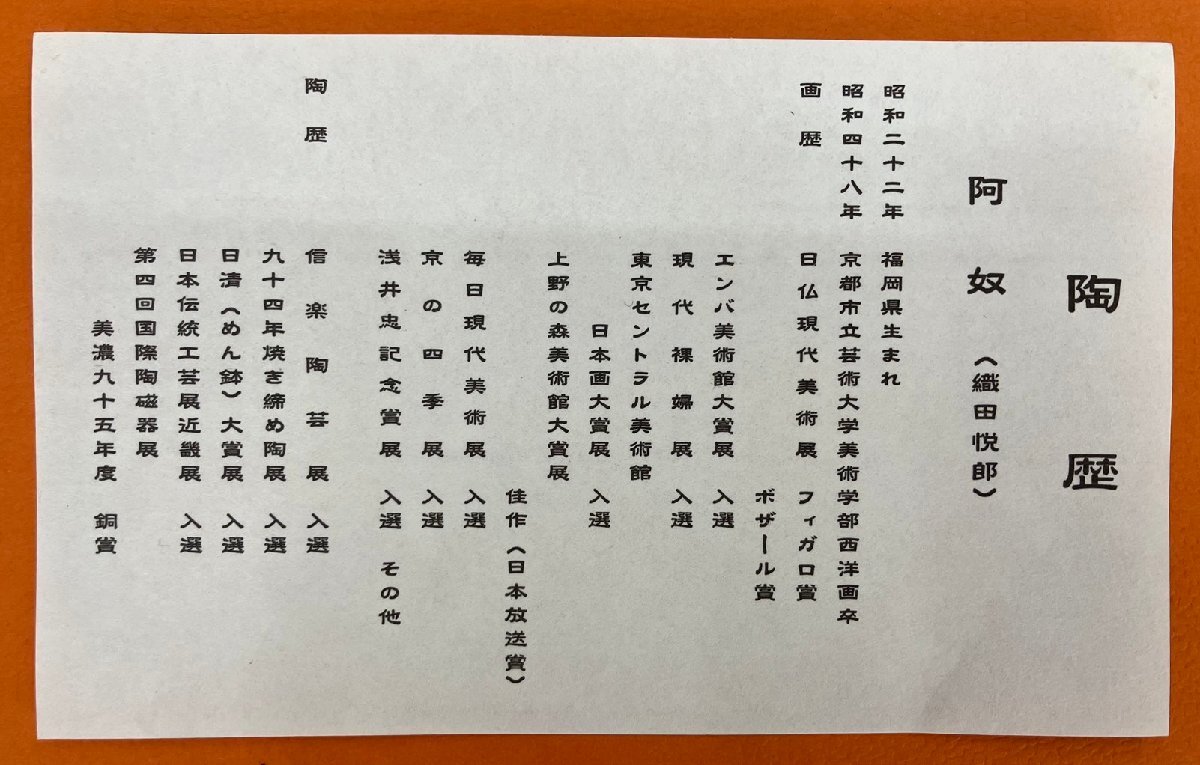 陶歴
阿奴（織田悦郎）
昭和二十二年 福岡県生まれ
昭和四十八年 京都市立芸術大学美術学部西洋画卒
画歴 日仏現代美術展 フィガロ賞
ボザール賞
エンバ美術館大賞展 入選
現代裸婦展 入選
東京セントラル美術館
日本画大賞展 入選
上野の森美術館大賞展
佳作（日本放送賞）
毎日現代美術展 入選
京の四季展 入選
浅井忠記念賞展 入選 その他
陶歴 信楽陶芸展 入選
九十四年焼き締め陶展 入選
日清（めん鉢）大賞展 入選
日本伝統工芸展近畿展 入選
第四回国際陶磁器展
美濃九十五年度 銅賞